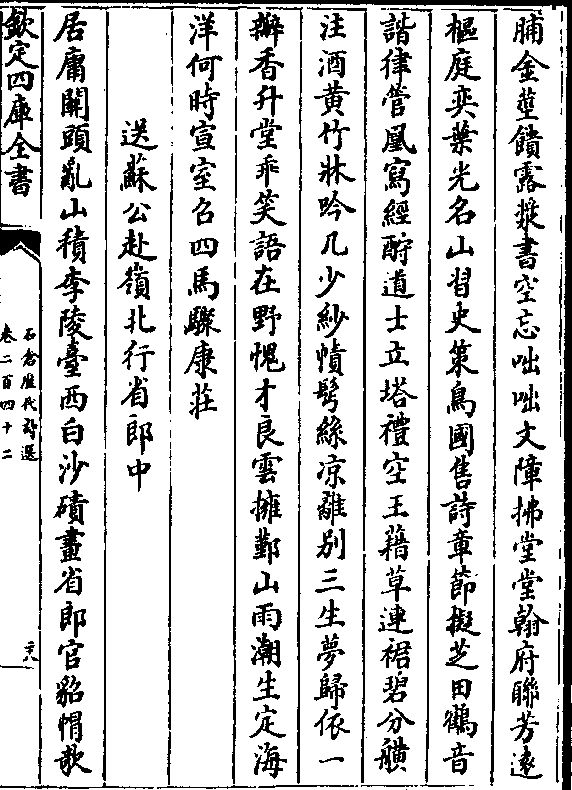 脯金莖饋露漿書空忘咄咄文障拂堂堂翰府聯芳遠
樞庭奕葉光名山習史策鳥國售詩章節擬芝田鶴音
諧律管凰寫經酧道士立塔禮空王藉草連裾碧分觵
注酒黄竹牀吟几少紗幘鬂絲凉離别三生夢歸依一
辦香升堂乖笑語在野愧才良雲擁鄞山雨潮生定海
洋何時宣室召四馬驟康莊
送蘇公赴嶺北行省郎中
居庸闗頭亂山積李陵臺西白沙磧畫省郎官貂帽欹
欽定四庫全書
石倉歷代詩選
卷二百四十二
二八